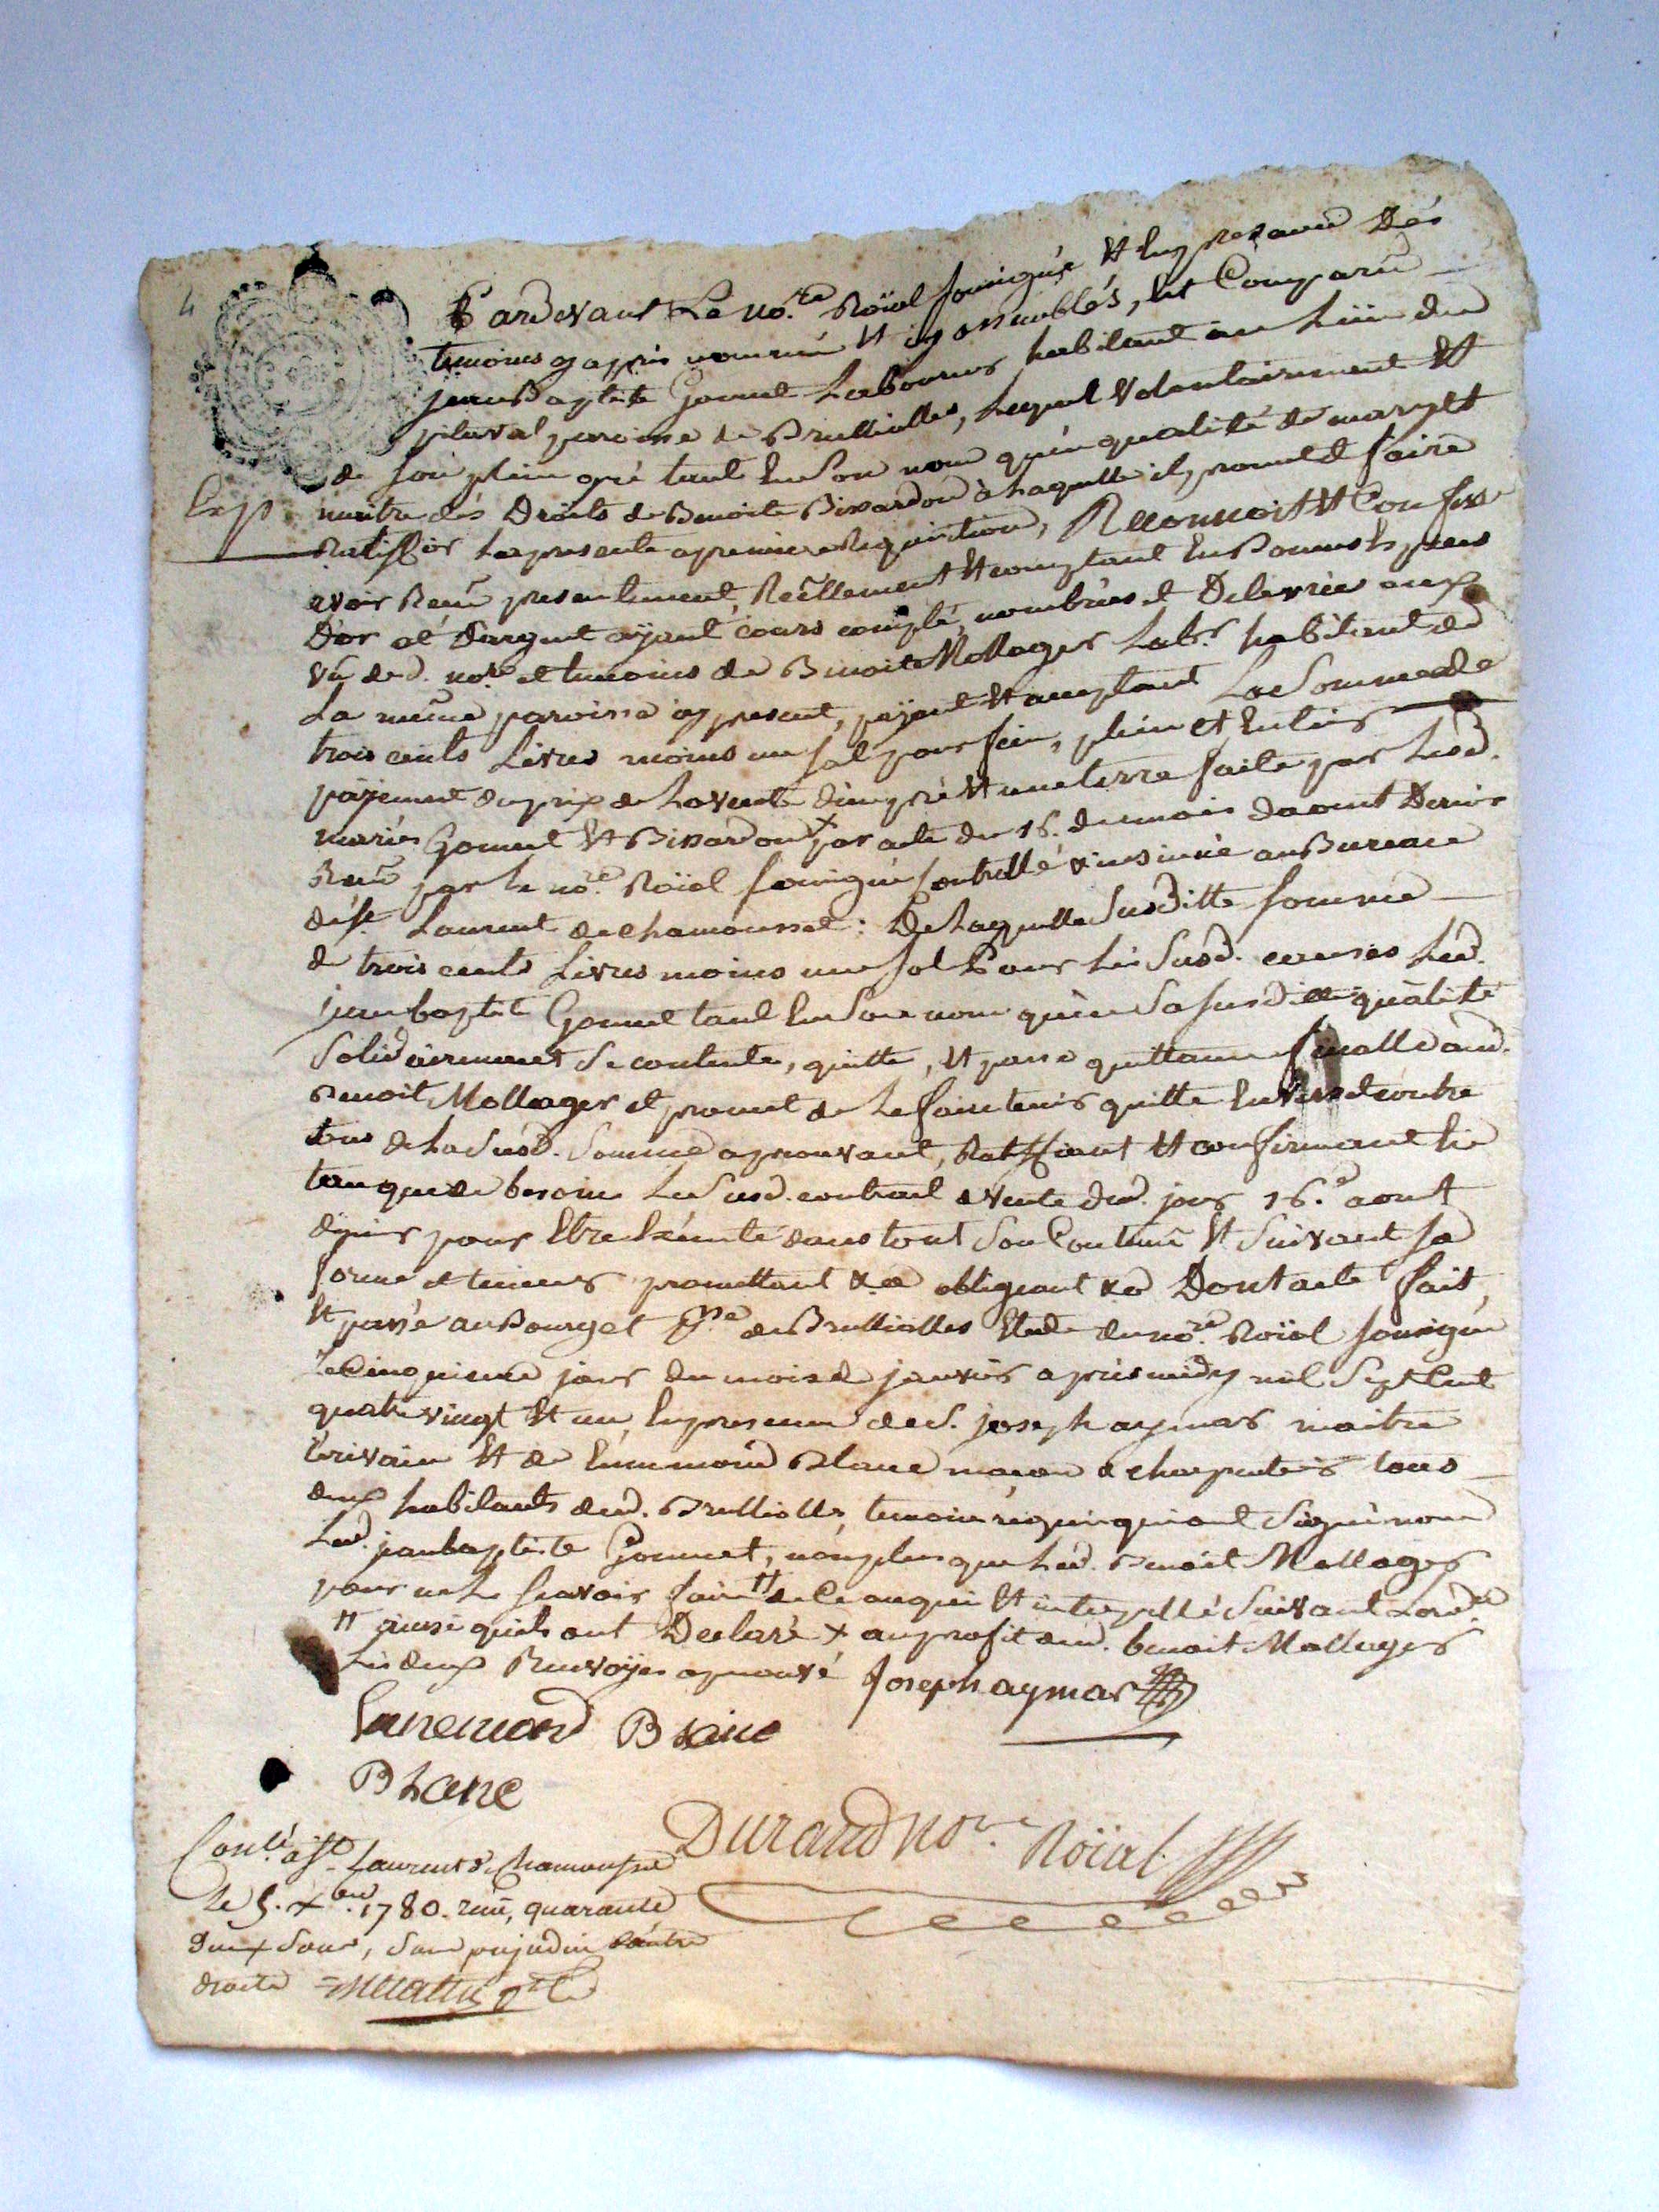 4
Pardevant Le no.re Roïal soussigné Et En presance Des
temoins cy apprès nommés Et cy assemblés, Est Comparu
jean Baptiste Gonnet Laboureur habitant au Lieu du
pluval paroisse de Brullioles, Lequel Volontairement Et
de son plein gré tant En Son nom qu'en qualité de mary Et
Exp.
maitre des Droits de Benoite Bissardon à Laquelle il promet de faire
Ratiffier La presente a premiere Requisition, Reconnoit Et Confesse
avoir Reçu presentement, Reéllement Et comptant En Bonnes Espeses
D'or et D'argent ayant cours compté, nombrées et Delivrées aux
vu de d. no.re et temoins de Benoit Mollager Lab.r habitant de
La même paroisse icy present, payant Et acceptant La Somme de
trois cents Livres moins un sol pour fin, plein et Entier
payement du prix de La vente d'un pré Et une terre faite par Lesd.
mariés Gonnet Et Bissardon + par acte du 16. du mois d'aoust Dernier
Reçu par Le no.re Roïal soussigné Controllé & insinué au Bureau
de S.t Laurent de Chamousset : De Laquelle Susditte somme
de trois cents Livres moins un sol Pour Les Susd. causes Led.
jean baptiste Gonnet tant En Son nom qu'en Sa susditte qualité
Solidairement Se contente, quitte, Et passe quittance finalle aud.
Benoit Mollager et promet de Le faire tenir quitte Envers et contre
tous de La Susd. Somme approuvant, Ratiffiant Et confirmant En
tan que de besoin Le Susd. contract de Vente dud. jour 16.e aout
dernier pour Etre Exécuté dans tout Son Contenu Et Suivant sa
forme et teneur promettant &a obligeant &a Dont acte fait,
Et passé au Bourg et P.sse de Brullioles Etude du no.re Roïal soussigné
Le Cinquieme jour du mois de janvier après midy mil Sept Cent
quatre vingt Et un, En presence de S. joseph aymar maitre
Ecrivain Et de Ennemond Blanc maçon & charpentier tous
deux habitants dud. Brullioles, temoins requis qui ont Signé non
Led. jean baptiste Gonnet, non plus que Led. Benoit Mollager
pour ne Le scavoir faire # de Ce enquis Et interpellé Suivant Lord.ce
# ainsi quils ont Declaré + au profit dud. benoit Mollager
Les deux Renvoyes approuvé
Joseph aymar
Ennemond Blanc
Blanc
Durand No.re Roïal
Con.lé à S.t Laurent de Chamousset
le 5. x.bre 1780. reçu, quarante
deux Sous, Sans prejudice d'autre
droits